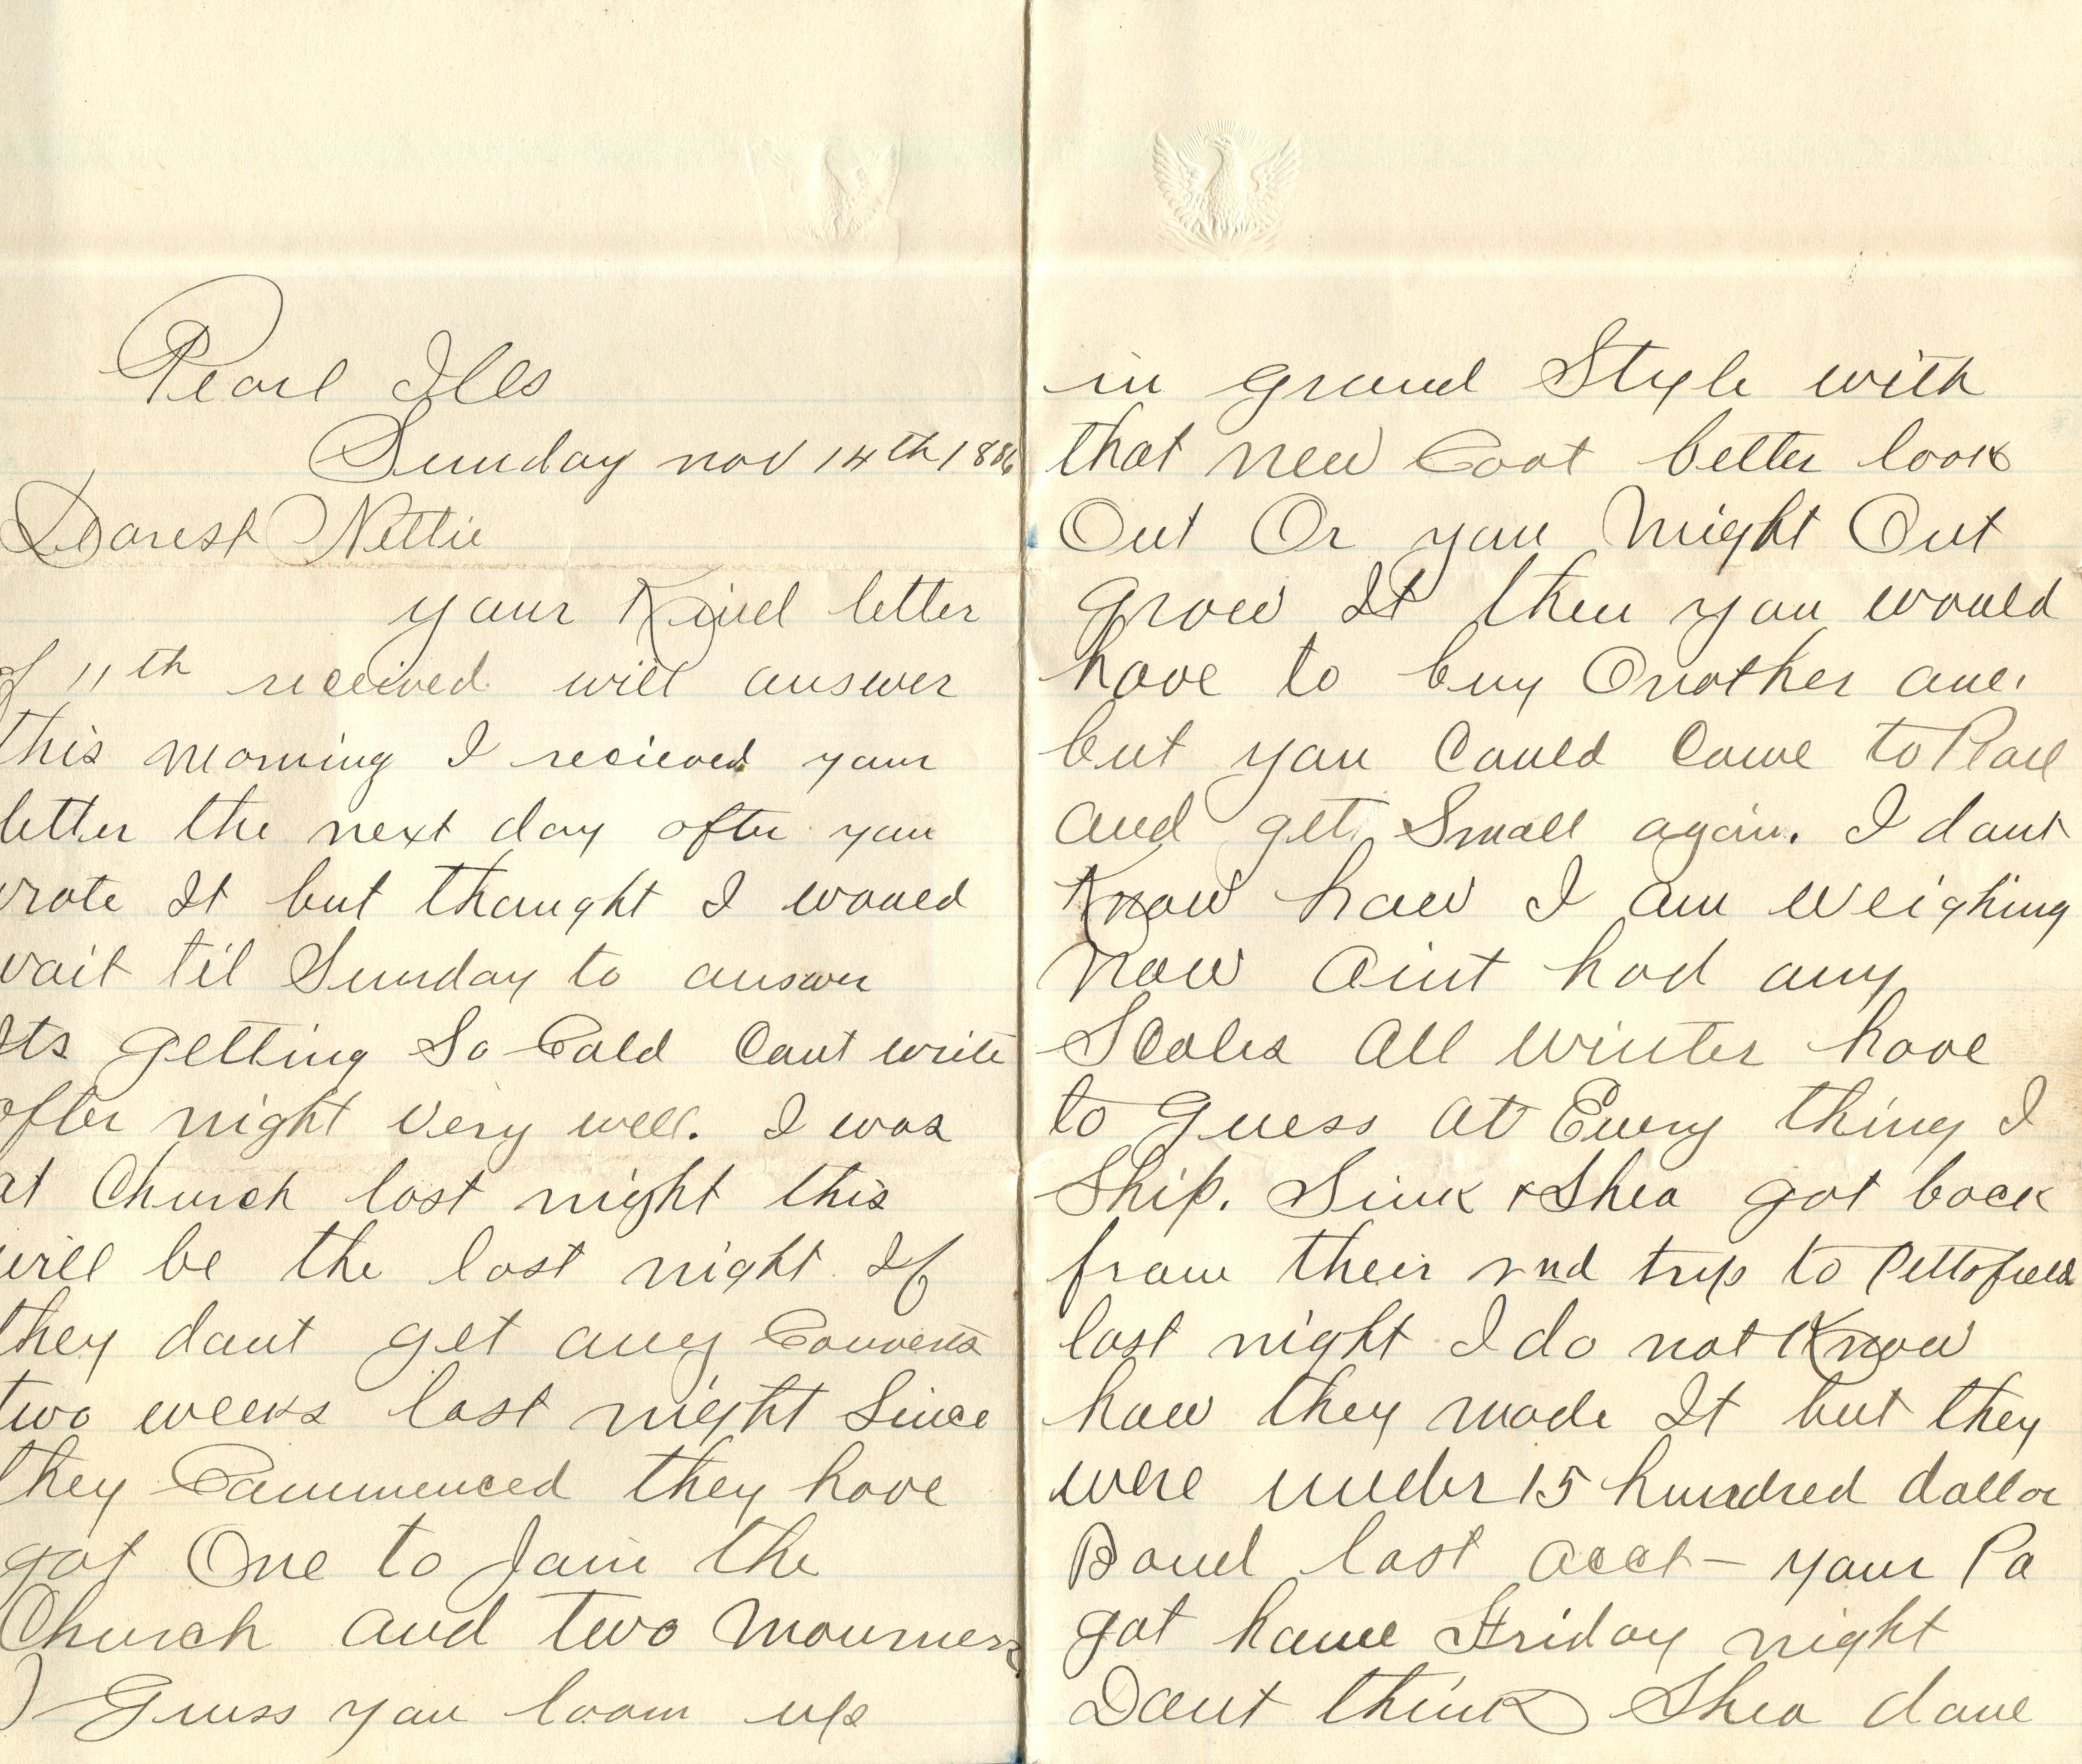 Pearl Ills
Sunday nov 14th 1886
Dearest Nettie
your Kind letter
of 11th received will answer
this morning I recieved your
letter the next day after you
wrote It but thought I would
wait til Sunday to answer
Its getting So Cold Cant write
after night very well. I was
at Church last night this
will be the last night If
they dont get any Converts
two weeks last night Since
they Commenced they have
got One to Join the
Church and two Mourners
I Guess you loom up
in grand Style with
that new Coat better look
Out Or you Might Out
grow It then you would
have to buy Another one.
but you Could Come to Pearl
and get Small again. I dont
Know how I am weighing
Now Aint had any
Scales All Winter have
to Guess At Every thing I
Ship. Sink & Shea got back
from their 2nd trip to Pittsfield
last night I do not Know
how they made It but they
were under 15 hundred dollar
Bond last acct — your Pa
got home Friday night
Dont think Shea done